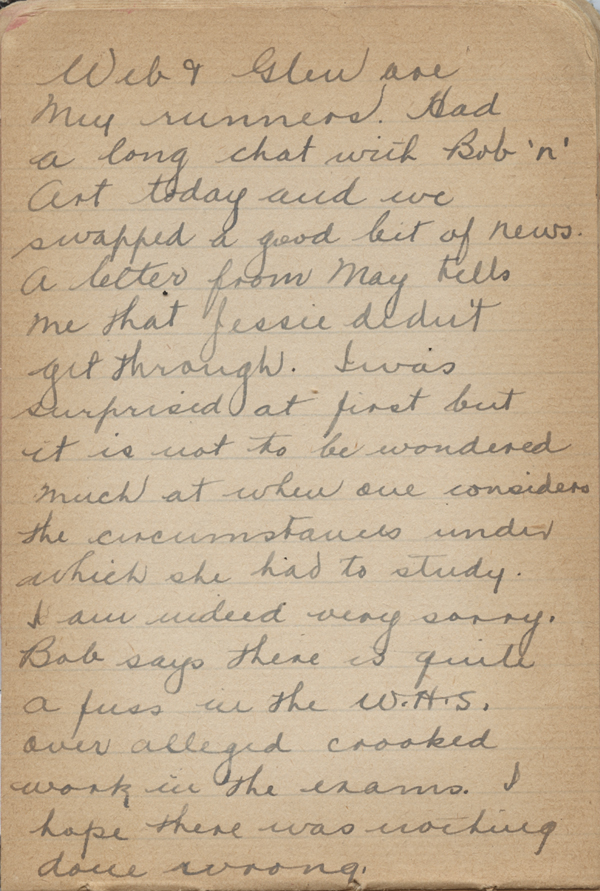 Web & Glen are
my runners. Had
a long chat with Bob 'n'
Art today and we
swapped a good bit of news.
A letter from May tells
me that Jessie didn't
get through. I was
surprised at first but
it is not to be wondered
much at when one considers
the circumstances under
which she had to study.
I am indeed very sorry.
Bob says there is quite
a fuss in the W.H.S.
over alleged crooked
work in the exams. I
hope there was nothing
done wrong.